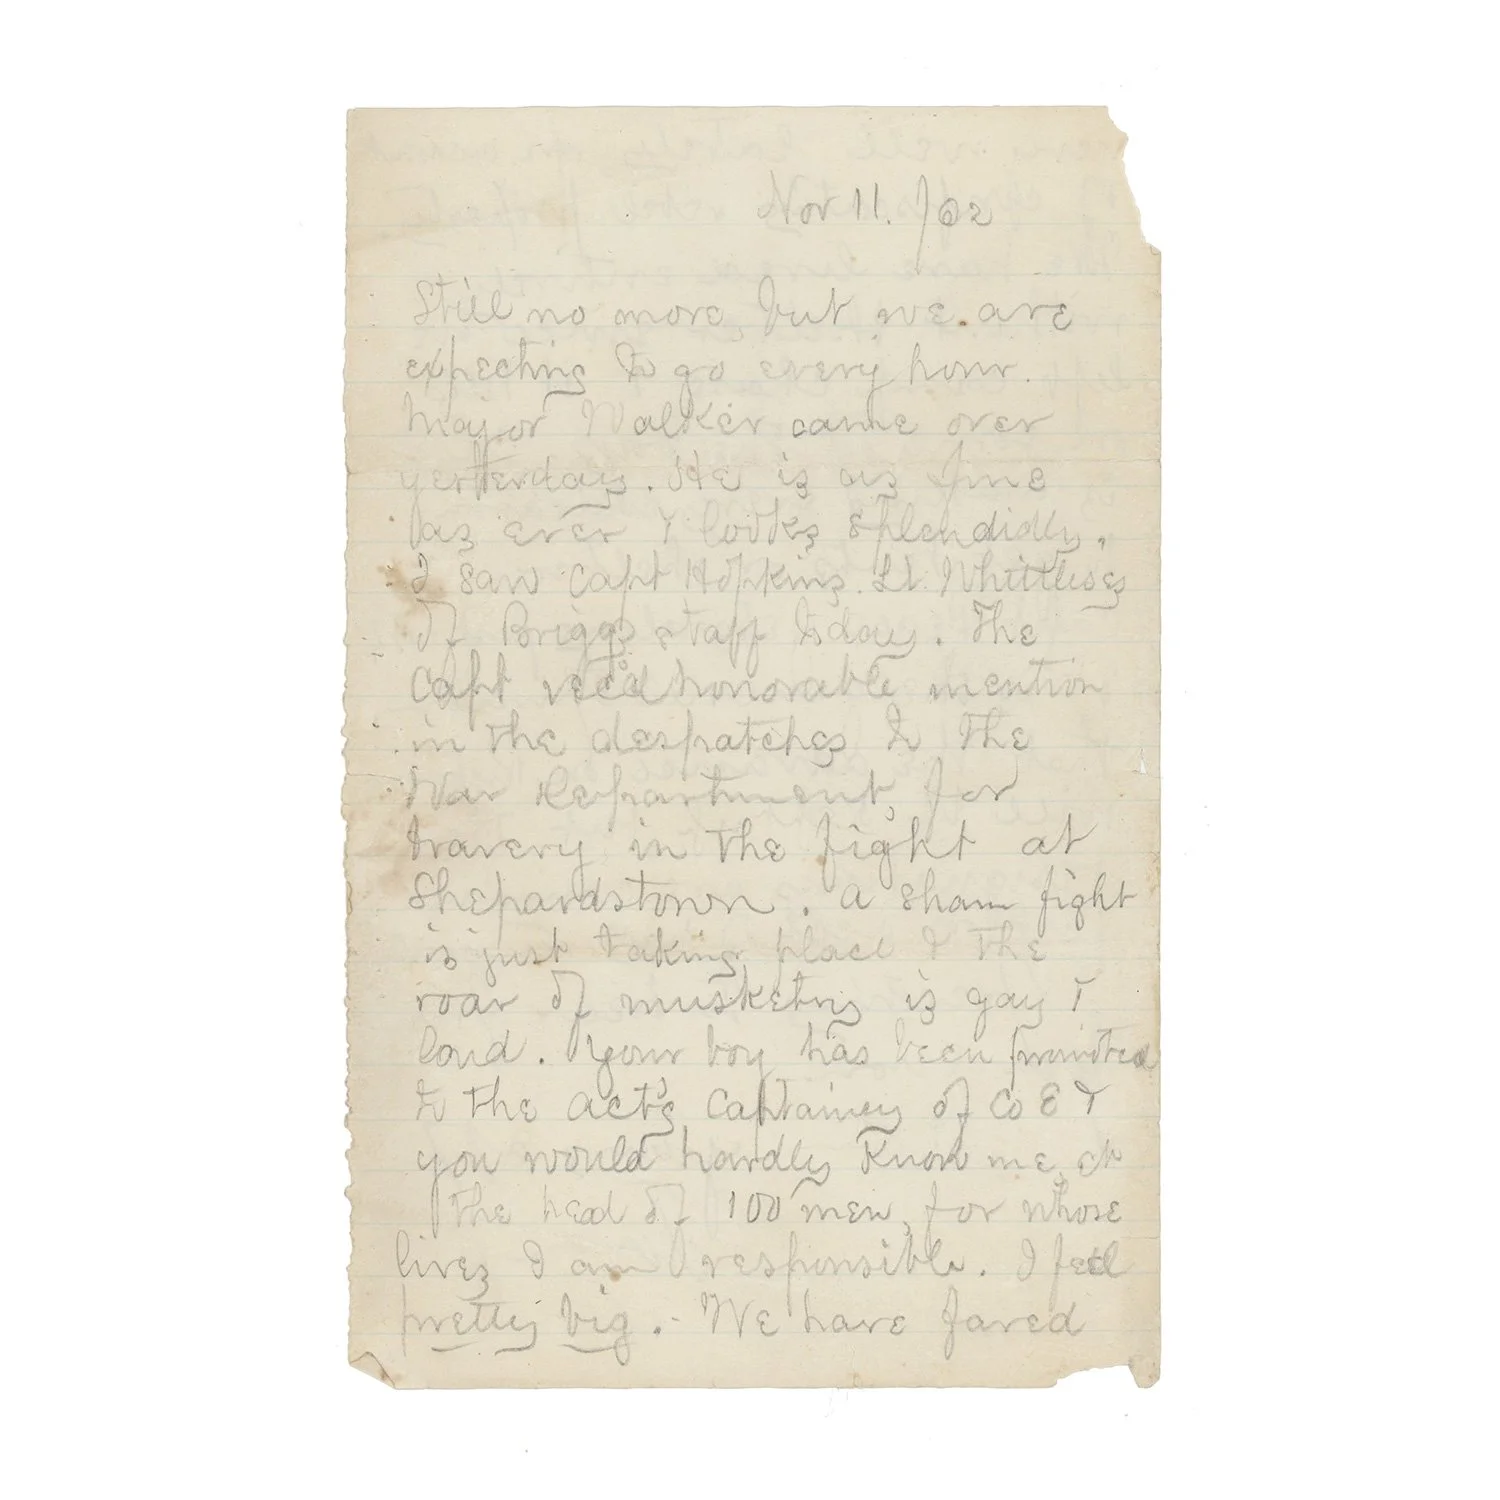 Nov 11. /62
Still no more, but we are
expecting to go every hour.
Major Walker came over
yesterday. He is as fine
as ever & looks splendidly.
I saw Capt Hopkins. Lt. Whittlesey
of Briggs staff today. The
Capt rec'd honorable mention
in the despatches to the
War Department, for
bravery in the fight at
Shepardstown. A sham fight
is just taking place & the
roar of musketry is gay &
loud. Your boy has been promoted
to the act'g Captaincy of Co E &
you would hardly know me, at
the head of 100 men, for whose
lives I am responsible. I feel
pretty big. - We have fared